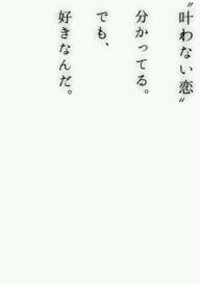 "叶わない恋"
分かってる。
でも、
好きなんだ。